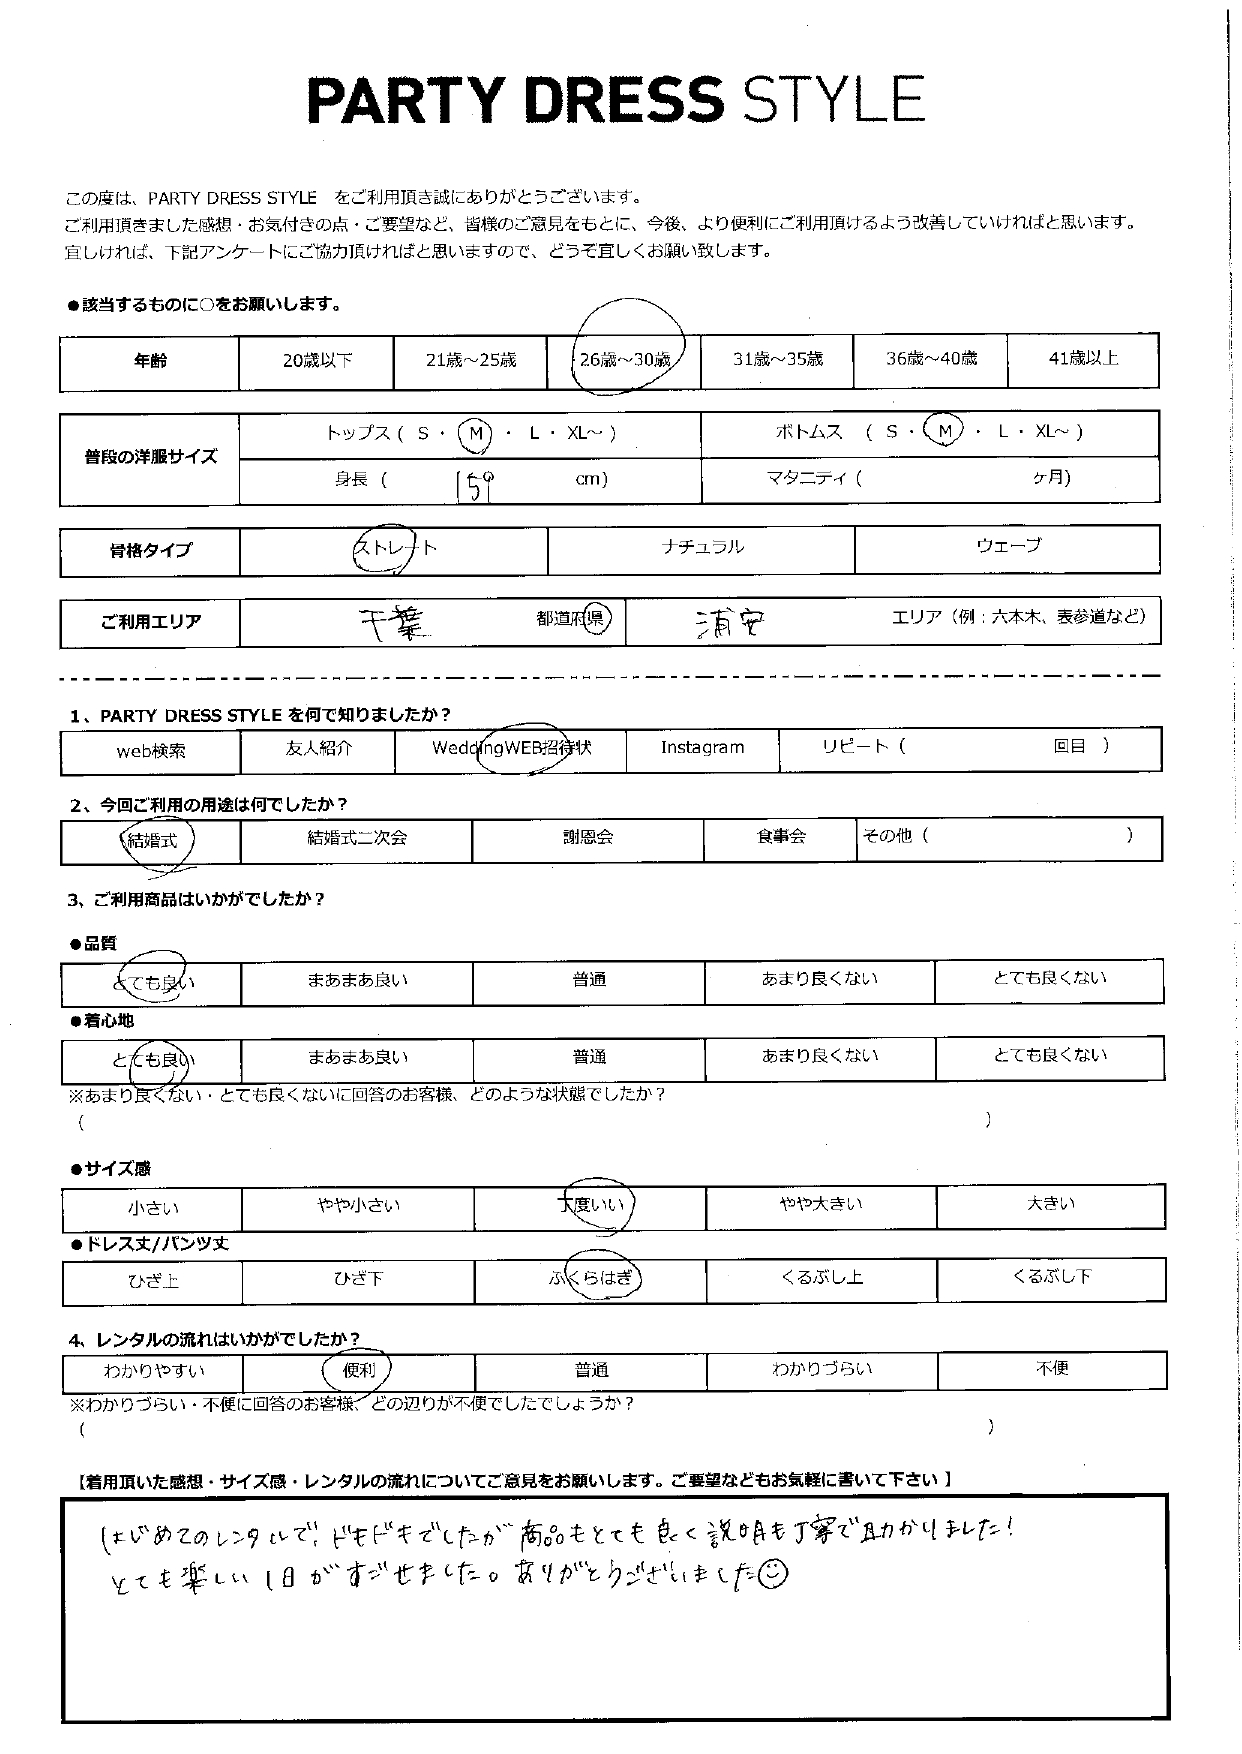 PARTY DRESS STYLE
この度は、PARTY DRESS STYLE をご利用頂き誠にありがとうございます。
ご利用頂きました感想・お気付きの点・ご要望など、皆様のご意見をもとに、今後、より便利にご利用頂けるよう改善していければと思います。
宜しければ、下記アンケートにご協力頂ければと思いますので、どうぞ宜しくお願い致します。
●該当するものに○をお願いします。
年齢 20歳以下 21歳～25歳 26歳～30歳 31歳～35歳 36歳～40歳 41歳以上
普段の洋服サイズ
トップス ( S ・ M ・ L ・ XL～ ) ボトムス ( S ・ M ・ L ・ XL～ )
身長 ( 159 cm) マタニティ ( ヶ月)
骨格タイプ ストレート ナチュラル ウェーブ
ご利用エリア 千葉 都道府県 浦安 エリア（例：六本木、表参道など）
1、PARTY DRESS STYLE を何で知りましたか？
web検索 友人紹介 WeddingWEB招待状 Instagram リピート ( 回目 )
2、今回ご利用の用途は何でしたか？
結婚式 結婚式二次会 謝恩会 食事会 その他 ( )
3、ご利用商品はいかがでしたか？
●品質
とても良い まあまあ良い 普通 あまり良くない とても良くない
●着心地
とても良い まあまあ良い 普通 あまり良くない とても良くない
※あまり良くない・とても良くないに回答のお客様、どのような状態でしたか？
( )
●サイズ感
小さい やや小さい 丁度いい やや大きい 大きい
●ドレス丈/パンツ丈
ひざ上 ひざ下 ふくらはぎ くるぶし上 くるぶし下
4、レンタルの流れはいかがでしたか？
わかりやすい 便利 普通 わかりづらい 不便
※わかりづらい・不便に回答のお客様、どの辺りが不便でしたでしょうか？
( )
【着用頂いた感想・サイズ感・レンタルの流れについてご意見をお願いします。ご要望などもお気軽に書いて下さい】
はじめてのレンタルで、ドキドキでしたが商品もとても良く説明も丁寧で助かりました！
とても楽しい1日がすごせました。ありがとうございました☺